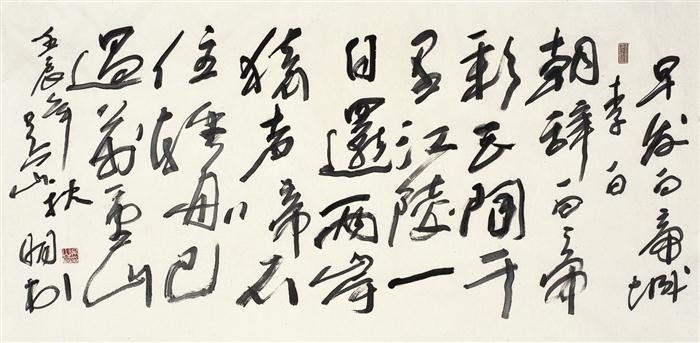 早发白帝城
李白
朝辞白帝
彩云间千
里江陵一
日還兩岸
猿声啼不
住轻舟已
過萬重山
壬辰年秋
吴山明